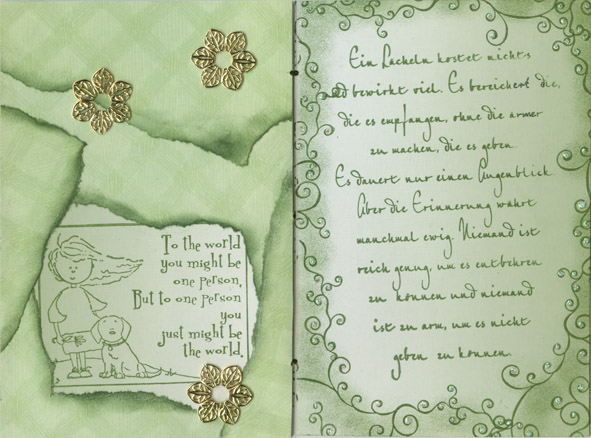 To the world
you might be
one person,
But to one person
you
just might be
the world.
Ein Lächeln kostet nichts
und bewirkt viel. Es bereichert die,
die es empfangen, ohne die ärmer
zu machen, die es geben.
Es dauert nur einen Augenblick
Aber die Erinnerung währt
manchmal ewig. Niemand ist
reich genug, um es entbehren
zu können und niemand
ist zu arm, um es nicht
geben zu können.